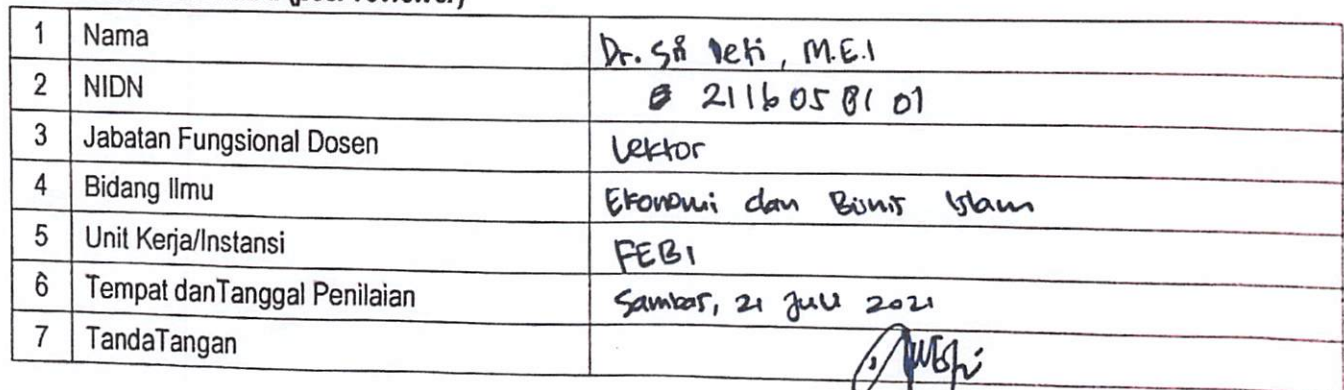 (peer reviewer)
1 Nama Dr. Sri Deti, M.E.I
2 NIDN 2116058101
3 Jabatan Fungsional Dosen Lektor
4 Bidang Ilmu Ekonomi dan Bisnis Islam
5 Unit Kerja/Instansi FEBI
6 Tempat danTanggal Penilaian Sambas, 21 Juli 2021
7 TandaTangan